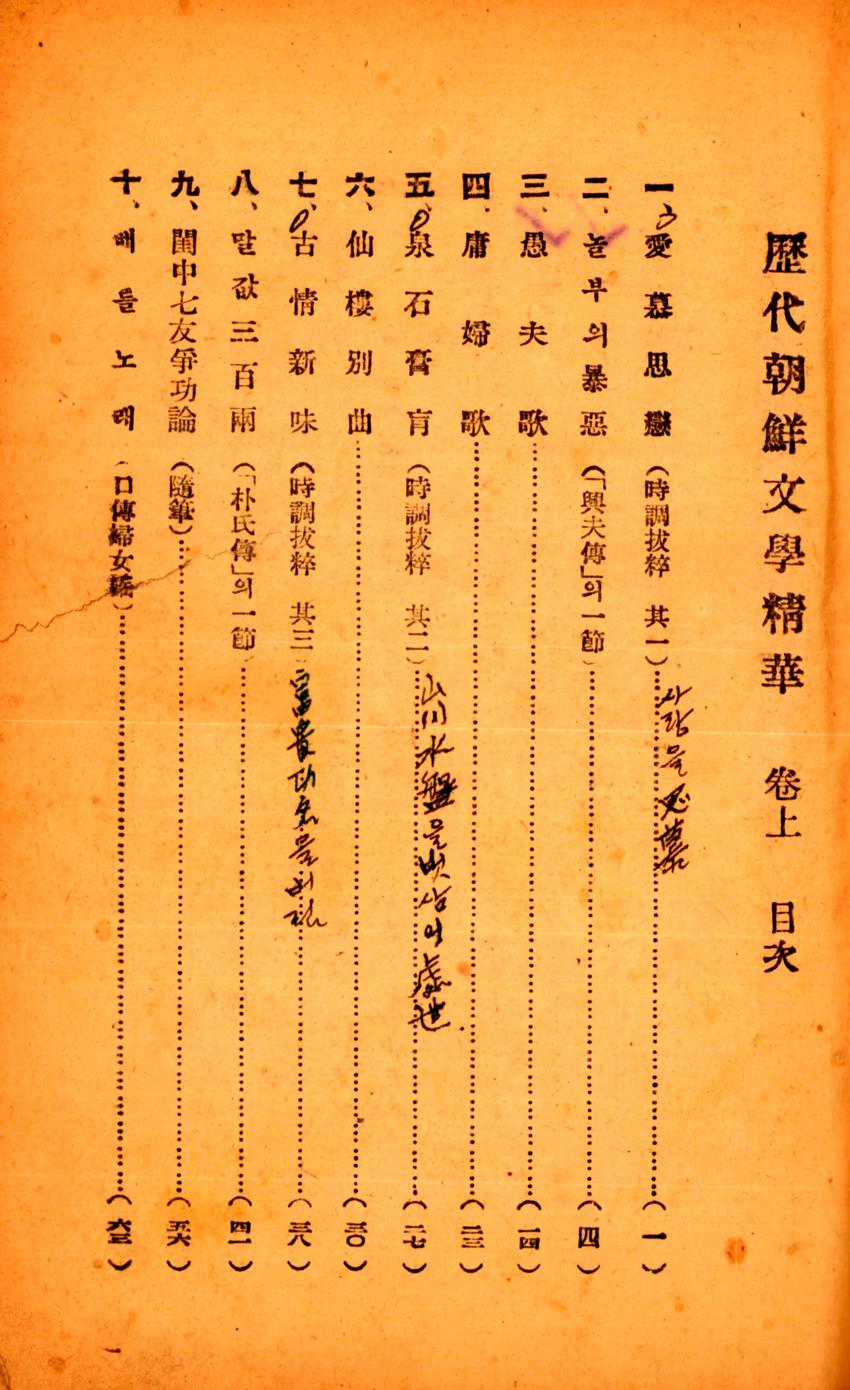 歷代朝鮮文學精華 卷上 目次
一、愛慕思戀(時調拔粹 其一)……(一)
사랑을 思慕
二、놀부의暴惡(「興夫傳」의一節)……(四)
三、愚夫歌……(一四)
四、庸婦歌……(二三)
五、泉石膏肓(時調拔粹 其二)……(二七)
山川水盤을 벗삼어
六、仙樓別曲……(三〇)
七、古情新味(時調拔粹 其三)……(三八)
富貴功名을
八、말값三百兩(「朴氏傳」의一節)……(四一)
九、閨中七友爭功論(隨筆)……(五六)
十、베틀노래(口傳婦女謠)……(六三)